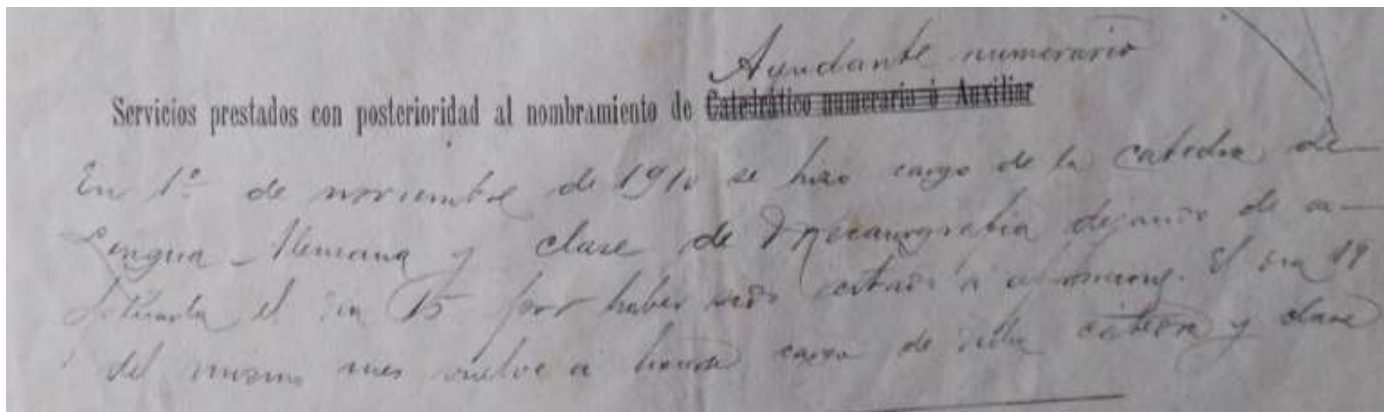 Ayudante numerario
Servicios prestados con posterioridad al nombramiento de Catedrático numerario ó Auxiliar
En 1º de noviembre de 1910 se hizo cargo de la catedra de
Lengua Alemana y clase de Mecanografía dejando de
el dia 15 por haber sido a El dia 19
del mismo mes vuelve a hacerse cargo de dicha catedra y clase